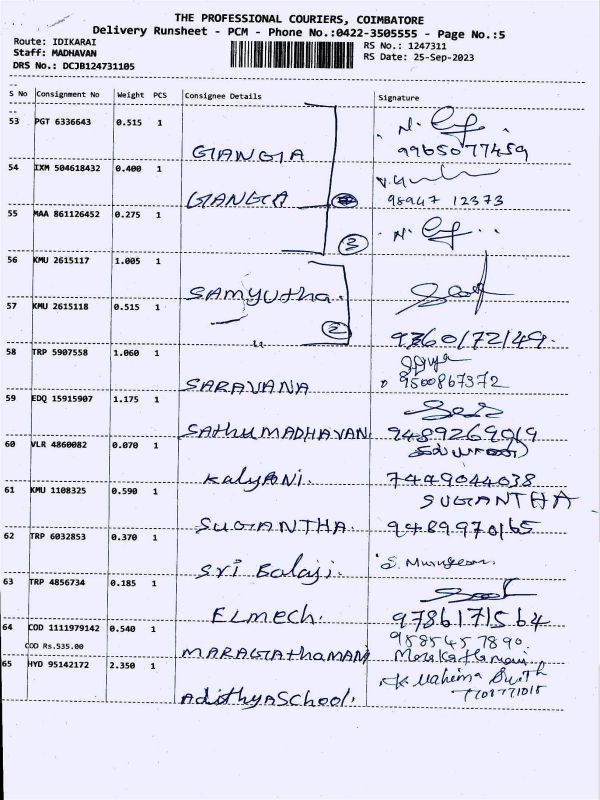 THE PROFESSIONAL COURIERS, COIMBATORE
Delivery Runsheet - PCM - Phone No.:0422-3505555 - Page No.:5
Route: IDIKARAI
RS No.: 1247311
Staff: MADHAVAN
RS Date: 25-Sep-2023
DRS No.: DCJB124731105
S No Consignment No Weight PCS Consignee Details Signature
53 PGT 6336643 0.515 1
GIANGIA 9965077459
54 IXM 504618432 0.400 1
GIANGIA 98947 12373
55 MAA 861126452 0.275 1
3
56 KMU 2615117 1.005 1
SAMYUtha.
57 KMU 2615118 0.515 1
2
" 9360172149.
58 TRP 5907558 1.060 1
SARAVANA 9500867372
59 EDQ 15915907 1.175 1
SAthu MADHAVAN 9489269019
60 VLR 4860082 0.070 1
KalyANi. 7449044038
61 KMU 1108325 0.590 1 SUGANTHA
SUGIANTHA. 9489970165
62 TRP 6032853 0.370 1
Sri Balaji. S. Murugesan
63 TRP 4856734 0.185 1
ELmech. 9786171564
64 COD 1111979142 0.540 1 9585457890
COD Rs.535.00
MARAGIAthAMANI
65 HYD 95142172 2.350 1
AdithyASchool.